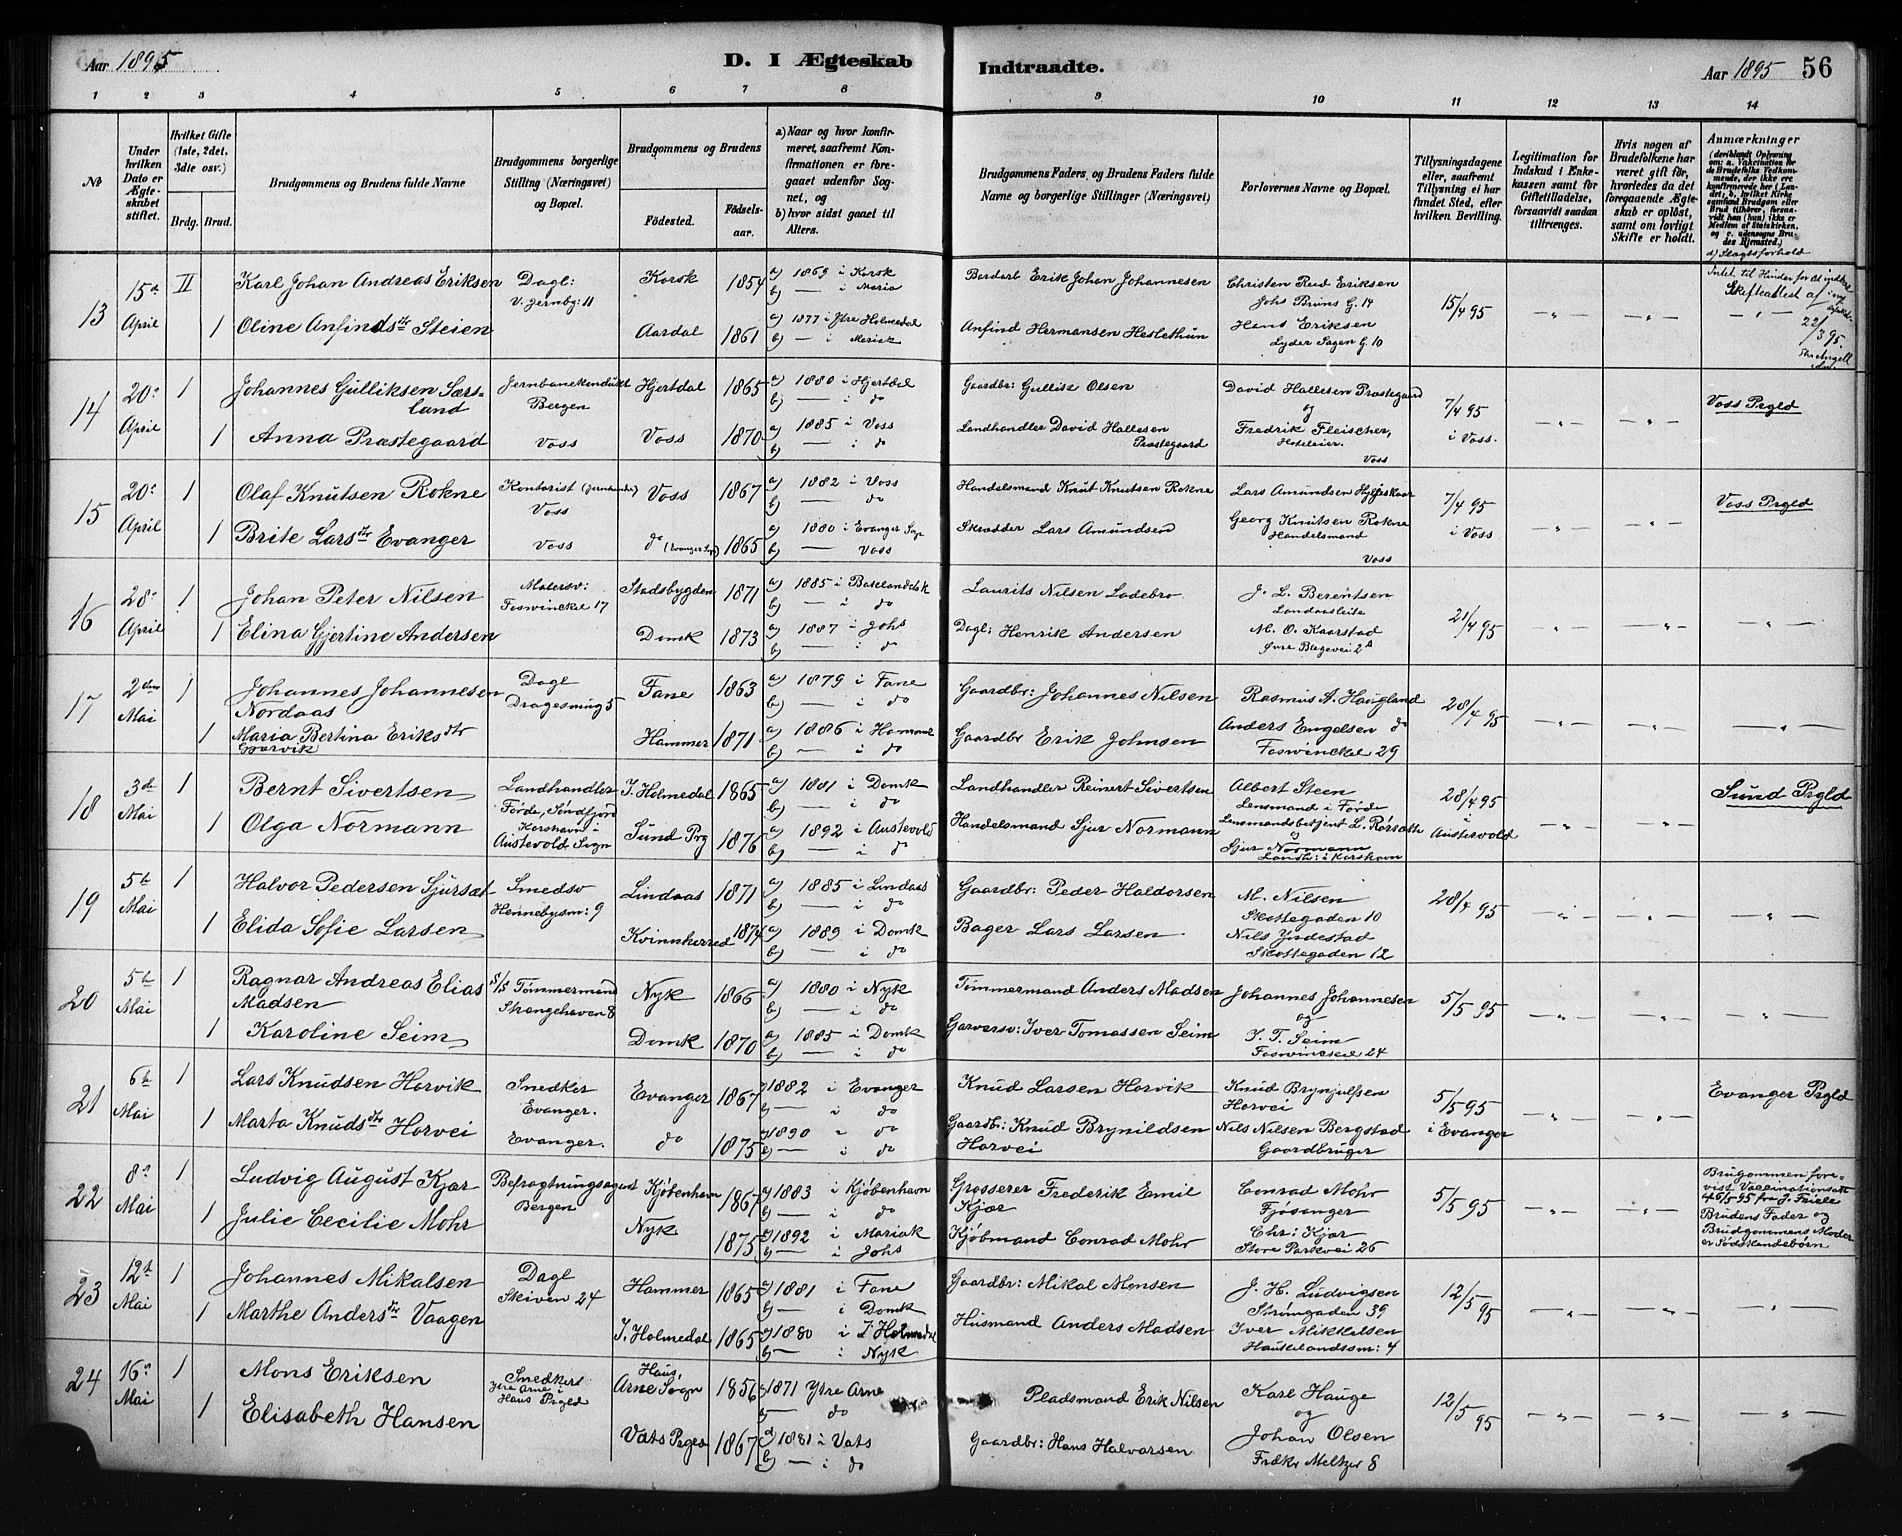 Aar 1895
D. I Ægteskab Indtraadte.
Aar 1895 56
1 2 3 4 5 6 7 8 9 10 11 12 13 14
No
Under hvilken Dato er Ægteskabet stiftet.
Hvilket Gifte (1ste, 2det, 3die osv.)
Brdg. Brud.
Brudgommens og Brudens fulde Navne
Brudgommens borgerlige Stilling (Næringsvei) og Bopæl.
Brudgommens og Brudens
Fødested. Fødselsaar.
a) Naar og hvor konfirmeret, saafremt Konfirmationen er foregaaet udenfor Sognet, og
b) hvor sidst gaaet til Alters.
Brudgommens Faders, og Brudens Faders fulde Navne og borgerlige Stillinger (Næringsvei)
Forlovernes Navne og Bopæl.
Tillysningsdagene eller, saafremt Tillysning ei har fundet Sted, efter hvilken Bevilling.
Legitimation for Indskud i Enkekassen samt for Giftetilladelse, forsaavidt saadan tiltrænges.
Hvis nogen af Brudefolkene har været gift før, hvorledes da det foregaaende Ægteskab er opløst, samt om lovligt Skifte er holdt.
Anmærkninger
(deriblandt Oplysning om: a. Vaccination for de Brudefolks Vedkommende, der ikke ere konfirmerede her i Landet; b. hvilket Kirkesamfund Brudgom eller Brud tilhører, forsaavidt han (hun) ikke er Medlem af Statskirken, og c. udensogns Brudes Hjemsted.)
d) Slagtsforhold
13 15de April II Karl Johan Andreas Eriksen Dagl: V. Jernbg: 11 Korsk 1854 a) 1869 i Korsk b) — i Maria Bordarb Erik Johan Johannesen Christen Reed Eriksen Johs Bruns G. 14 15/4 95 — " — — " —
1 Oline Anfindsdtr Steien Aardal 1861 a) 1877 i Ytre Holmedal b) — i Mariak Anfind Hermansen Heslethun Hans Eriksen Lyder Sagen G. 10
Intet til Hinder for at indtræde i nyt Ægtesk. Skifteattest af 22/3 95.
14 20de April 1 Johannes Gulliksen Særsland Jernbanekondukt Bergen Hjertdal 1865 a) 1880 i Hjertdal b) — i do Gaardbr: Gullik Olsen David Hallesen Præstegaard og 7/4 95 i Voss. — " — — " — Voss Prgld
1 Anna Præstegaard Voss Voss 1870 a) 1885 i Voss b) — i do Landhandler David Hallesen Præstegaard Fredrik Fleischer, Hoteleier. Voss
15 20de April 1 Olaf Knutsen Rokne Kontorist Voss Voss 1867 a) 1882 i Voss b) — do Handelsmand Knut Knutsen Rokne Lars Amundsen 7/4 95 i Voss — " — — " — Voss Prgld
1 Brite Larsdtr Evanger Voss do (Evanger Sogn) 1865 a) 1880 i Evanger Sogn b) — Voss Skrædder Lars Amundsen Georg Knutsen Rokne Handelsmand Voss
16 28de April 1 Johan Peter Nilsen Malersv: Foswinckel 17 Stadsbygden 1871 a) 1885 i b) — i do Laurits Nilsen Ladebro J. L. Berentsen Landaasleite 21/4 95 — " — — " — — " —
1 Elina Gjertine Andersen Domk 1873 a) 1887 i Johs b) — i do Dagl: Henrik Andersen M. O. Kaarstad Øvre Blegevei 2
17 2den Mai 1 Johannes Johannesen Nordaas Dagl Dragesmug 5 Fane 1863 a) 1879 i Fane b) — i do Gaardbr: Johannes Nilsen Rasmus A. Haugland 28/4 95 — " — — " — — " —
1 Maria Bertina Eriksdtr Hammer 1871 a) 1886 i Hammer b) — i do Gaardbr Erik Johnsen Anders Engelsen do Foswinckel 29
18 3de Mai 1 Bernt Sivertsen Landhandler Førde, Søndfjord Y. Holmedal 1865 a) 1881 i Domk b) — i do Landhandler Reinert Sivertsen Albert Steen Lensmand i Førde 28/4 95 i Austervold — " — — " — Sund Prgld
1 Olga Normann Korshavn i Austevold Sogn Sund Prg 1876 a) 1892 i Austevold b) — i do Handelsmand Sjur Normann Lensmandsbetjent L. Rørsæth og Sjur Normann Landh: i Korshavn
19 5te Mai 1 Halvor Pedersen Sjursæt Smedsv Hennebysm: 9 Lindaas 1871 a) 1885 i Lindaas b) — i do Gaardbr: Peder Haldorsen M. Nilsen Skottegaden 10 28/4 95 — " — — " — — " —
1 Elida Sofie Larsen Kvinnherred 1874 a) 1889 i Domk b) — i do Bager Lars Larsen Nils Yndestad Skottegaden 12
20 5te Mai 1 Ragnar Andreas Elias Madsen S/S Tømmermand Strangehaven 8 Nyk 1866 a) 1880 i Nyk b) — i do Tømmermand Anders Madsen Johannes Johannesen og 5/5 95 — " — — " — — " —
1 Karoline Seim Domk 1870 a) 1885 i Domk b) — i do Garversv: Iver Tomassen Seim J. T. Seim Foswinckel 24
21 6te Mai 1 Lars Knudsen Horvik Snedker Evanger. Evanger 1867 a) 1882 i Evanger b) — i do Knud Larsen Horvik Knud Brynjulfsen Horvei 5/5 95 i Evanger — " — — " — Evanger Prgld
1 Marta Knudsdtr Horvei Evanger. do 1875 a) 1890 i do b) — i do Gaardbr: Knud Brynildsen Horvei Nils Nilsen Bergstad Gaardbruger
22 8de Mai 1 Ludvig August Kjær Befragtningsagent Bergen Kjøbenhavn 1867 a) 1883 i Kjøbenhavn b) — i do Grosserer Frederik Emil Kjær Conrad Mohr Fjøsanger 5/5 95 — " — — " —
1 Julie Cecilie Mohr Nyk 1875 a) 1892 i Mariak b) — i Johs Kjøbmand Conrad Mohr Chr: Kjær Store Parkvei 26
Brugommen forevist Vaccinationsatt 6/5 95 fra J. Friele
Brudens Fader og Brudgommens Moder er Sødskendebørn
23 12te Mai 1 Johannes Mikalsen Dagl Skiven 24 Hammer 1865 a) 1881 i Fane b) — i Domk Gaardbr: Mikal Monsen J. H. Ludvigsen Strømgaden 39 12/5 95 — " — — " — — " —
1 Marthe Andersdtr Vaagen Y. Holmedal 1865 a) 1880 i Y Holmedal b) — i Nyk Husmand Anders Madsen Iver Mikkelsen Haukelandssm: 4
24 16de Mai 1 Mons Eriksen Snedker Ytre Arne i Haus Prgld Haus, Arne Sogn 1856 a) 1871 Ytre Arne b) — do Pladsmand Erik Nilsen Karl Hauge og 12/5 95 — " — — " — — " —
1 Elisabeth Hansen Vats Prgld 1867 a) 1881 i Vats b) — i do Gaardbr: Hans Halvorsen Johan Olsen Fredkr Meltzer 8